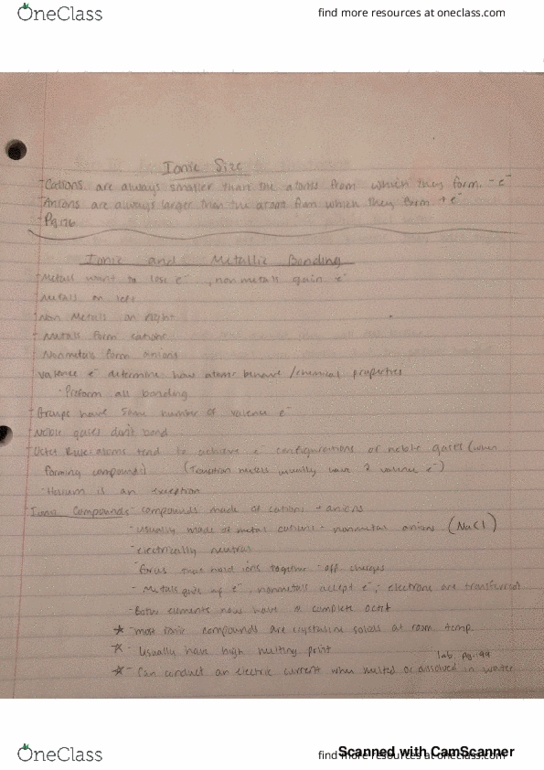 OneClass
find more resources at oneclass.com
Ionic Size
- Cations are always smaller than the atoms from which they form. - e⁻
- Anions are always larger than the atoms from which they form + e⁻
- Pg 176
Ionic and Metallic Bonding
- Metals want to lose e⁻, nonmetals gain e⁻
- Metals on left
Non Metals on right
- Metals form cations
Nonmetals form anions
valence e⁻ determine how atoms behave / chemical properties
· Preform all bonding
- Groups have same number of valence e⁻
- Noble gases don't bond
- Octet Rule: atoms tend to achieve e⁻ configurations of noble gases (when
forming compounds) metals usually have 2 valence e⁻)
- is an exception
- Ionic Compounds: compounds made of cations + anions
- usually made of metal cations + nonmetal anions (NaCl)
- electrically neutral
that hold ions together - charges
- Metals give up e⁻, nonmetals accept e⁻; electrons are transferred
- Both elements now have a complete octet
★ - most ionic compounds are crystalline solids at room temp.
★ - Usually have high melting point
lab. pg.
★ - Can conduct an electric current when melted or dissolved in water
OneClass
find more resources at oneclass.com
Scanned with CamScanner